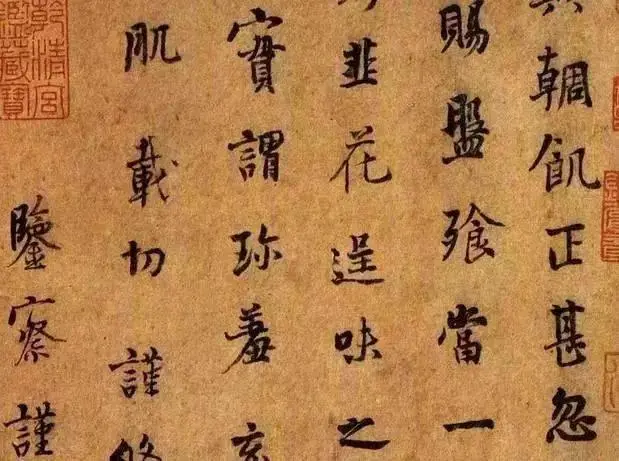 輖飢正甚忽
賜盤飧當一
韭花逞味之
實謂珍羞充
肌載切謹
鑒察謹
乾清宮
鑑藏寶